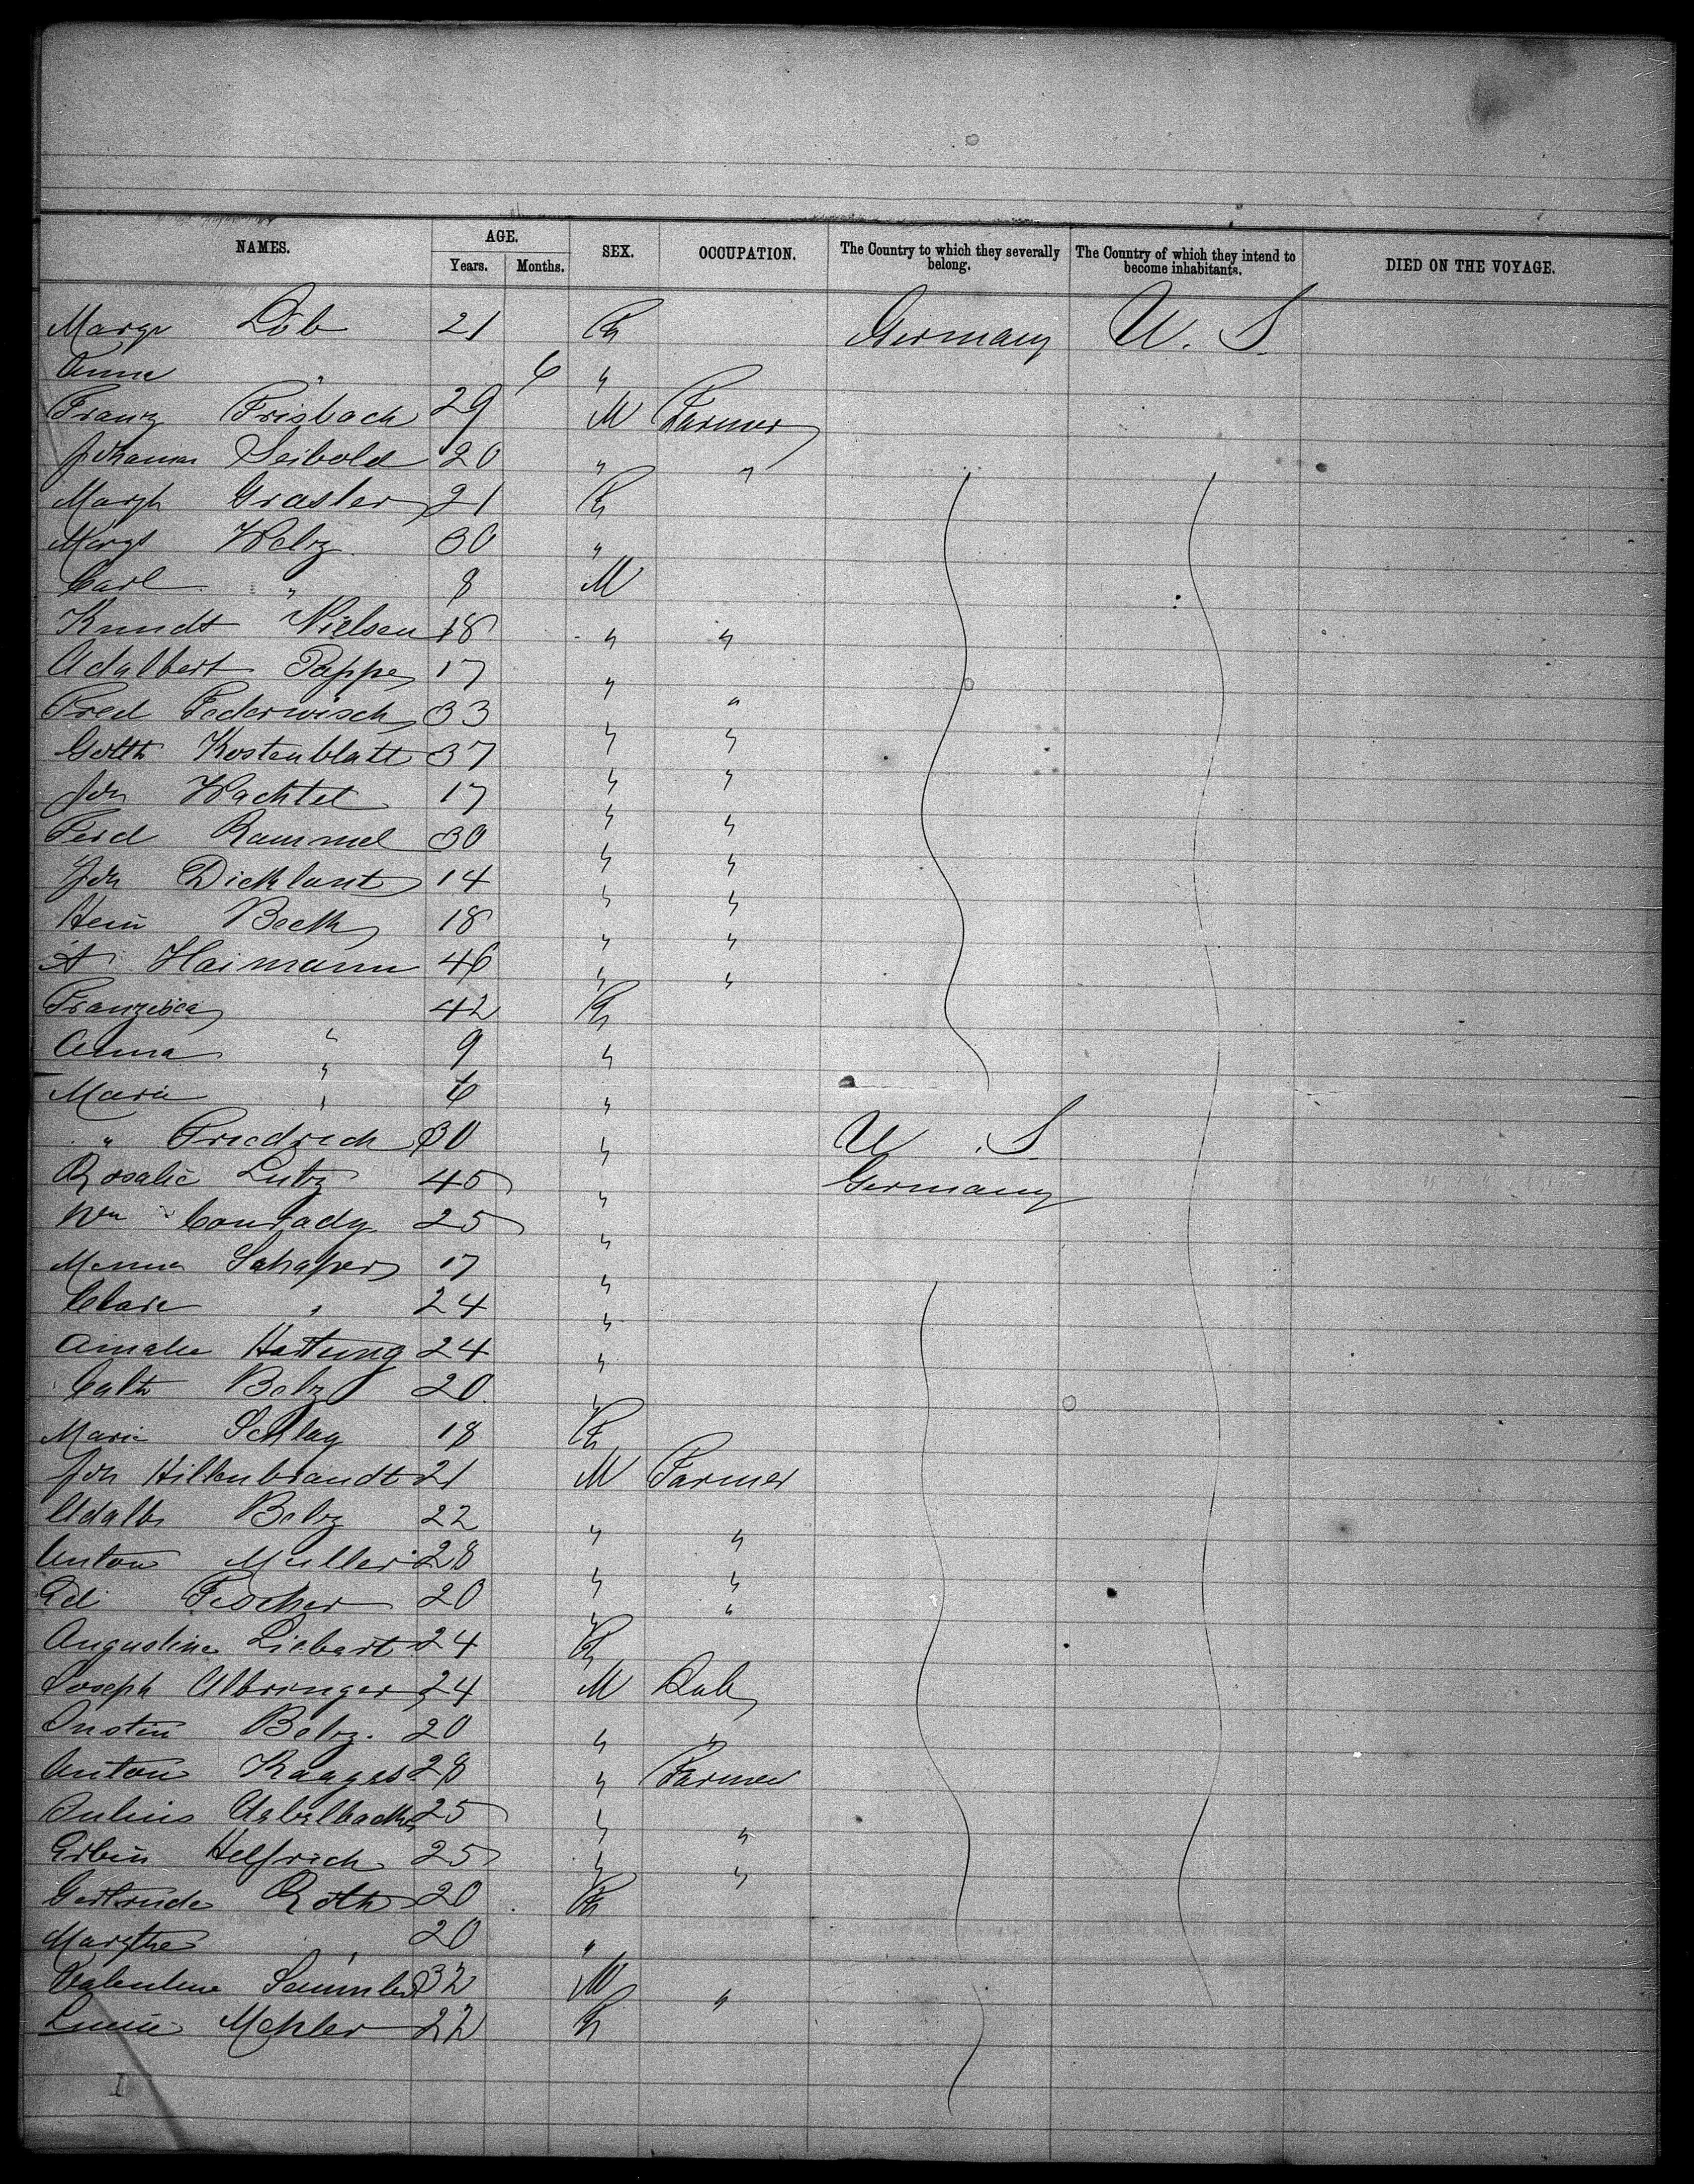 NAMES. AGE. SEX. OCCUPATION. The Country to which they severally belong. The Country of which they intend to become inhabitants. DIED ON THE VOYAGE.
Years. Months.
Margr Löb 21 Fh Germany U. S.
Anna " 6 "
Franz Frisbach 29 M Farmer
Johannes Seibold 20 " "
Margh Grasler 21 Fh
Margt Welz 30 "
Carl " 8 M
Knudt Nielsen 18 " "
Adalbert Pappe 17 " "
Fred Federwisch 33 " "
Gotth Kostenblatt 37 " "
Joh Wachtel 17 " "
Ferd Rammel 30 " "
Joh Dickhaut 14 " "
Hein Beck 18 " "
A Haimann 46 " "
Franzisca " 42 Fh
Anna " 9 "
Maria " 6 "
" Friedrich 30 " U. S.
Rosalie Lutz 45 " Germany
Wm Conrady 25 "
Minna Schaper 17 "
Clara " 24 "
Amalie Hartung 24 "
Cath Belz 20 "
Maria Schlag 18 Fh
Joh Hillenbrandt 21 M Farmer
Adalb Belz 22 " "
Anton Muller 28 " "
Ed Fischer 20 " "
Augustine Liebart 24 Fh
Joseph 24 M Lab
Justin Belz. 20 " "
Anton 28 " Farmer
Julius 25 " "
Erbin Helfrich 25 " "
Gertrude Roth 20 Fh
Margthe " 20 "
Valentine 32 M "
Mehler 22 Fh
I